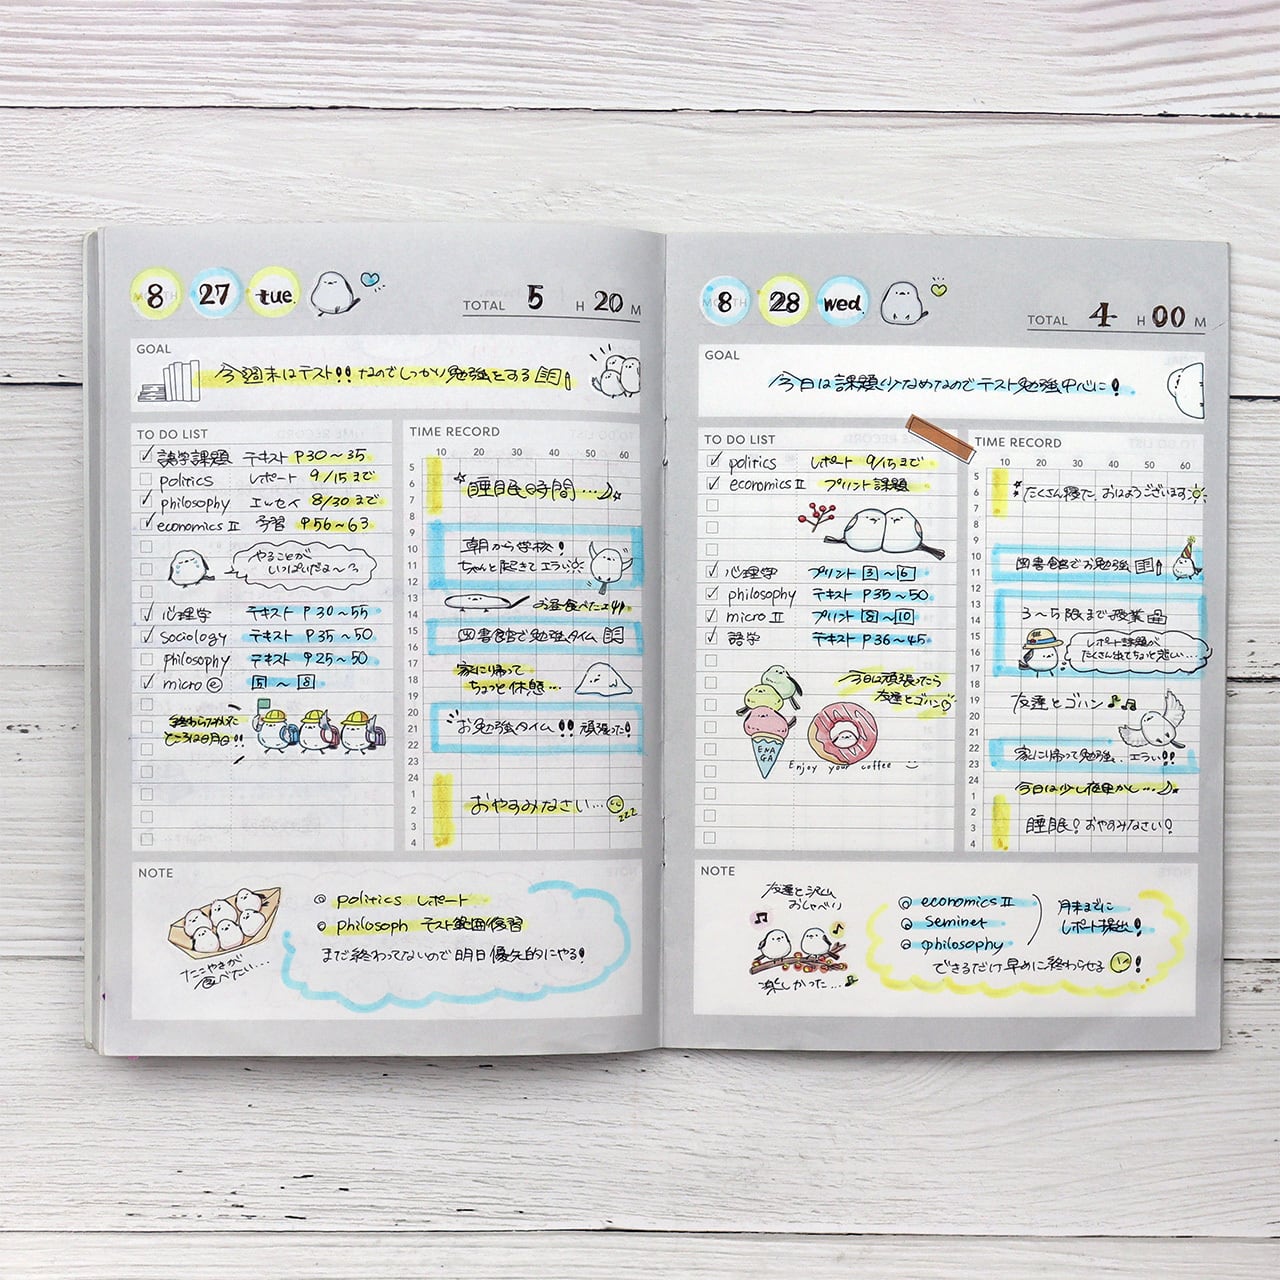 8 27 tue.
TOTAL 5 H 20 M
GOAL
今週末はテスト!! なのでしっかり勉強をする
TO DO LIST
語学課題 テキスト P30~35
politics レポート 9/15まで
philosophy エッセイ 8/30まで
economics II 予習 P56~63
やることが
いっぱいだよ~
心理学 テキスト P30~55
Sociology テキスト P35~50
philosophy テキスト P25~50
micro テキスト 5 ~ 8
終わらなかった
ところは明日!!
TIME RECORD
10 20 30 40 50 60
5
6
7
8
9
10
11
12
13
14
15
16
17
18
19
20
21
22
23
24
1
2
3
4
睡眠時間...♪
朝から学校!
ちゃんと起きてエライ
お昼食べたよ
図書館で勉強タイム
家に帰って
ちょっと休憩...
お勉強タイム!! 頑張った!
おやすみなさい...
zzz
NOTE
たこやきが
食べたい...
politics レポート
philosoph テスト範囲復習
まだ終わってないので明日優先的にやる!
8 28 wed.
TOTAL 4 H 00 M
GOAL
今日は課題少なめなのでテスト勉強中心に!
TO DO LIST
politics レポート 9/15まで
economics II プリント課題
心理学 プリント 3 ~ 6
philosophy テキスト P35~50
micro II プリント 8 ~ 10
語学 テキスト P36~45
今日は頑張ったら
友達とゴハン
ENAGA
Enjoy your coffee
TIME RECORD
10 20 30 40 50 60
5
6
7
8
9
10
11
12
13
14
15
16
17
18
19
20
21
22
23
24
1
2
3
4
たくさん寝た。おはようございます
図書館でお勉強
3~5限まで授業
レポート課題が
たくさん出てちょっと悲しい...
友達とゴハン♪♫
家に帰って勉強、エライ!!
今日は少し夜更かし...
睡眠! おやすみなさい!
NOTE
友達と沢山
おしゃべり
楽しかった...♪
economics II
Seminer
philosophy
月末までに
レポート提出!
できるだけ早めに終わらせる !